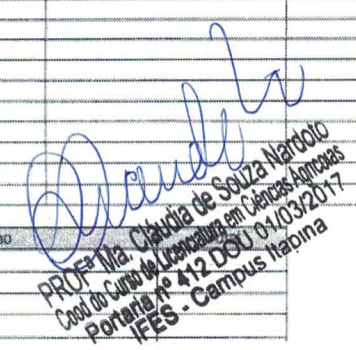 no
PROFª Ma. Cláudia de Souza Nardoto
Coord do Curso de Licenciatura em Ciências Agrícolas
Portaria nº 412 DOU 01/03/2017
IFES - Campus Itapina